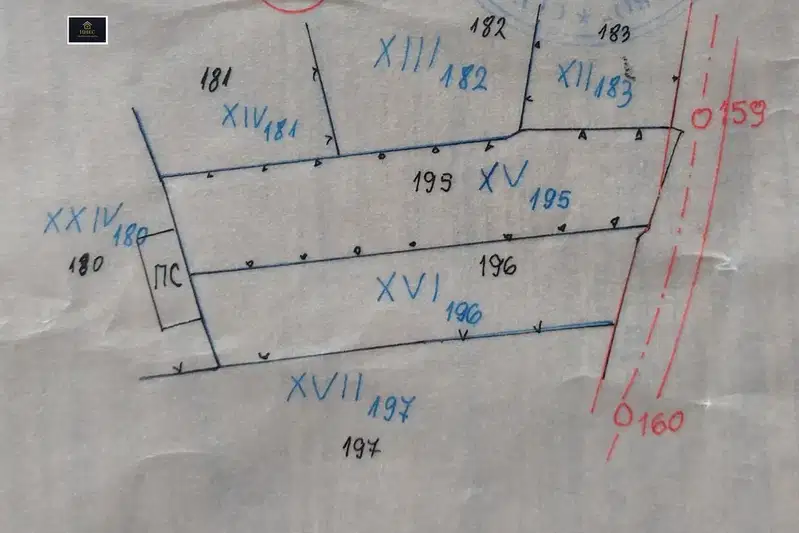 182
183
XIII 182
181
XII 183
XIV 181
159
195
XV 195
XXIV 180
180
ПС
196
XVI 196
XVII 197
160
197